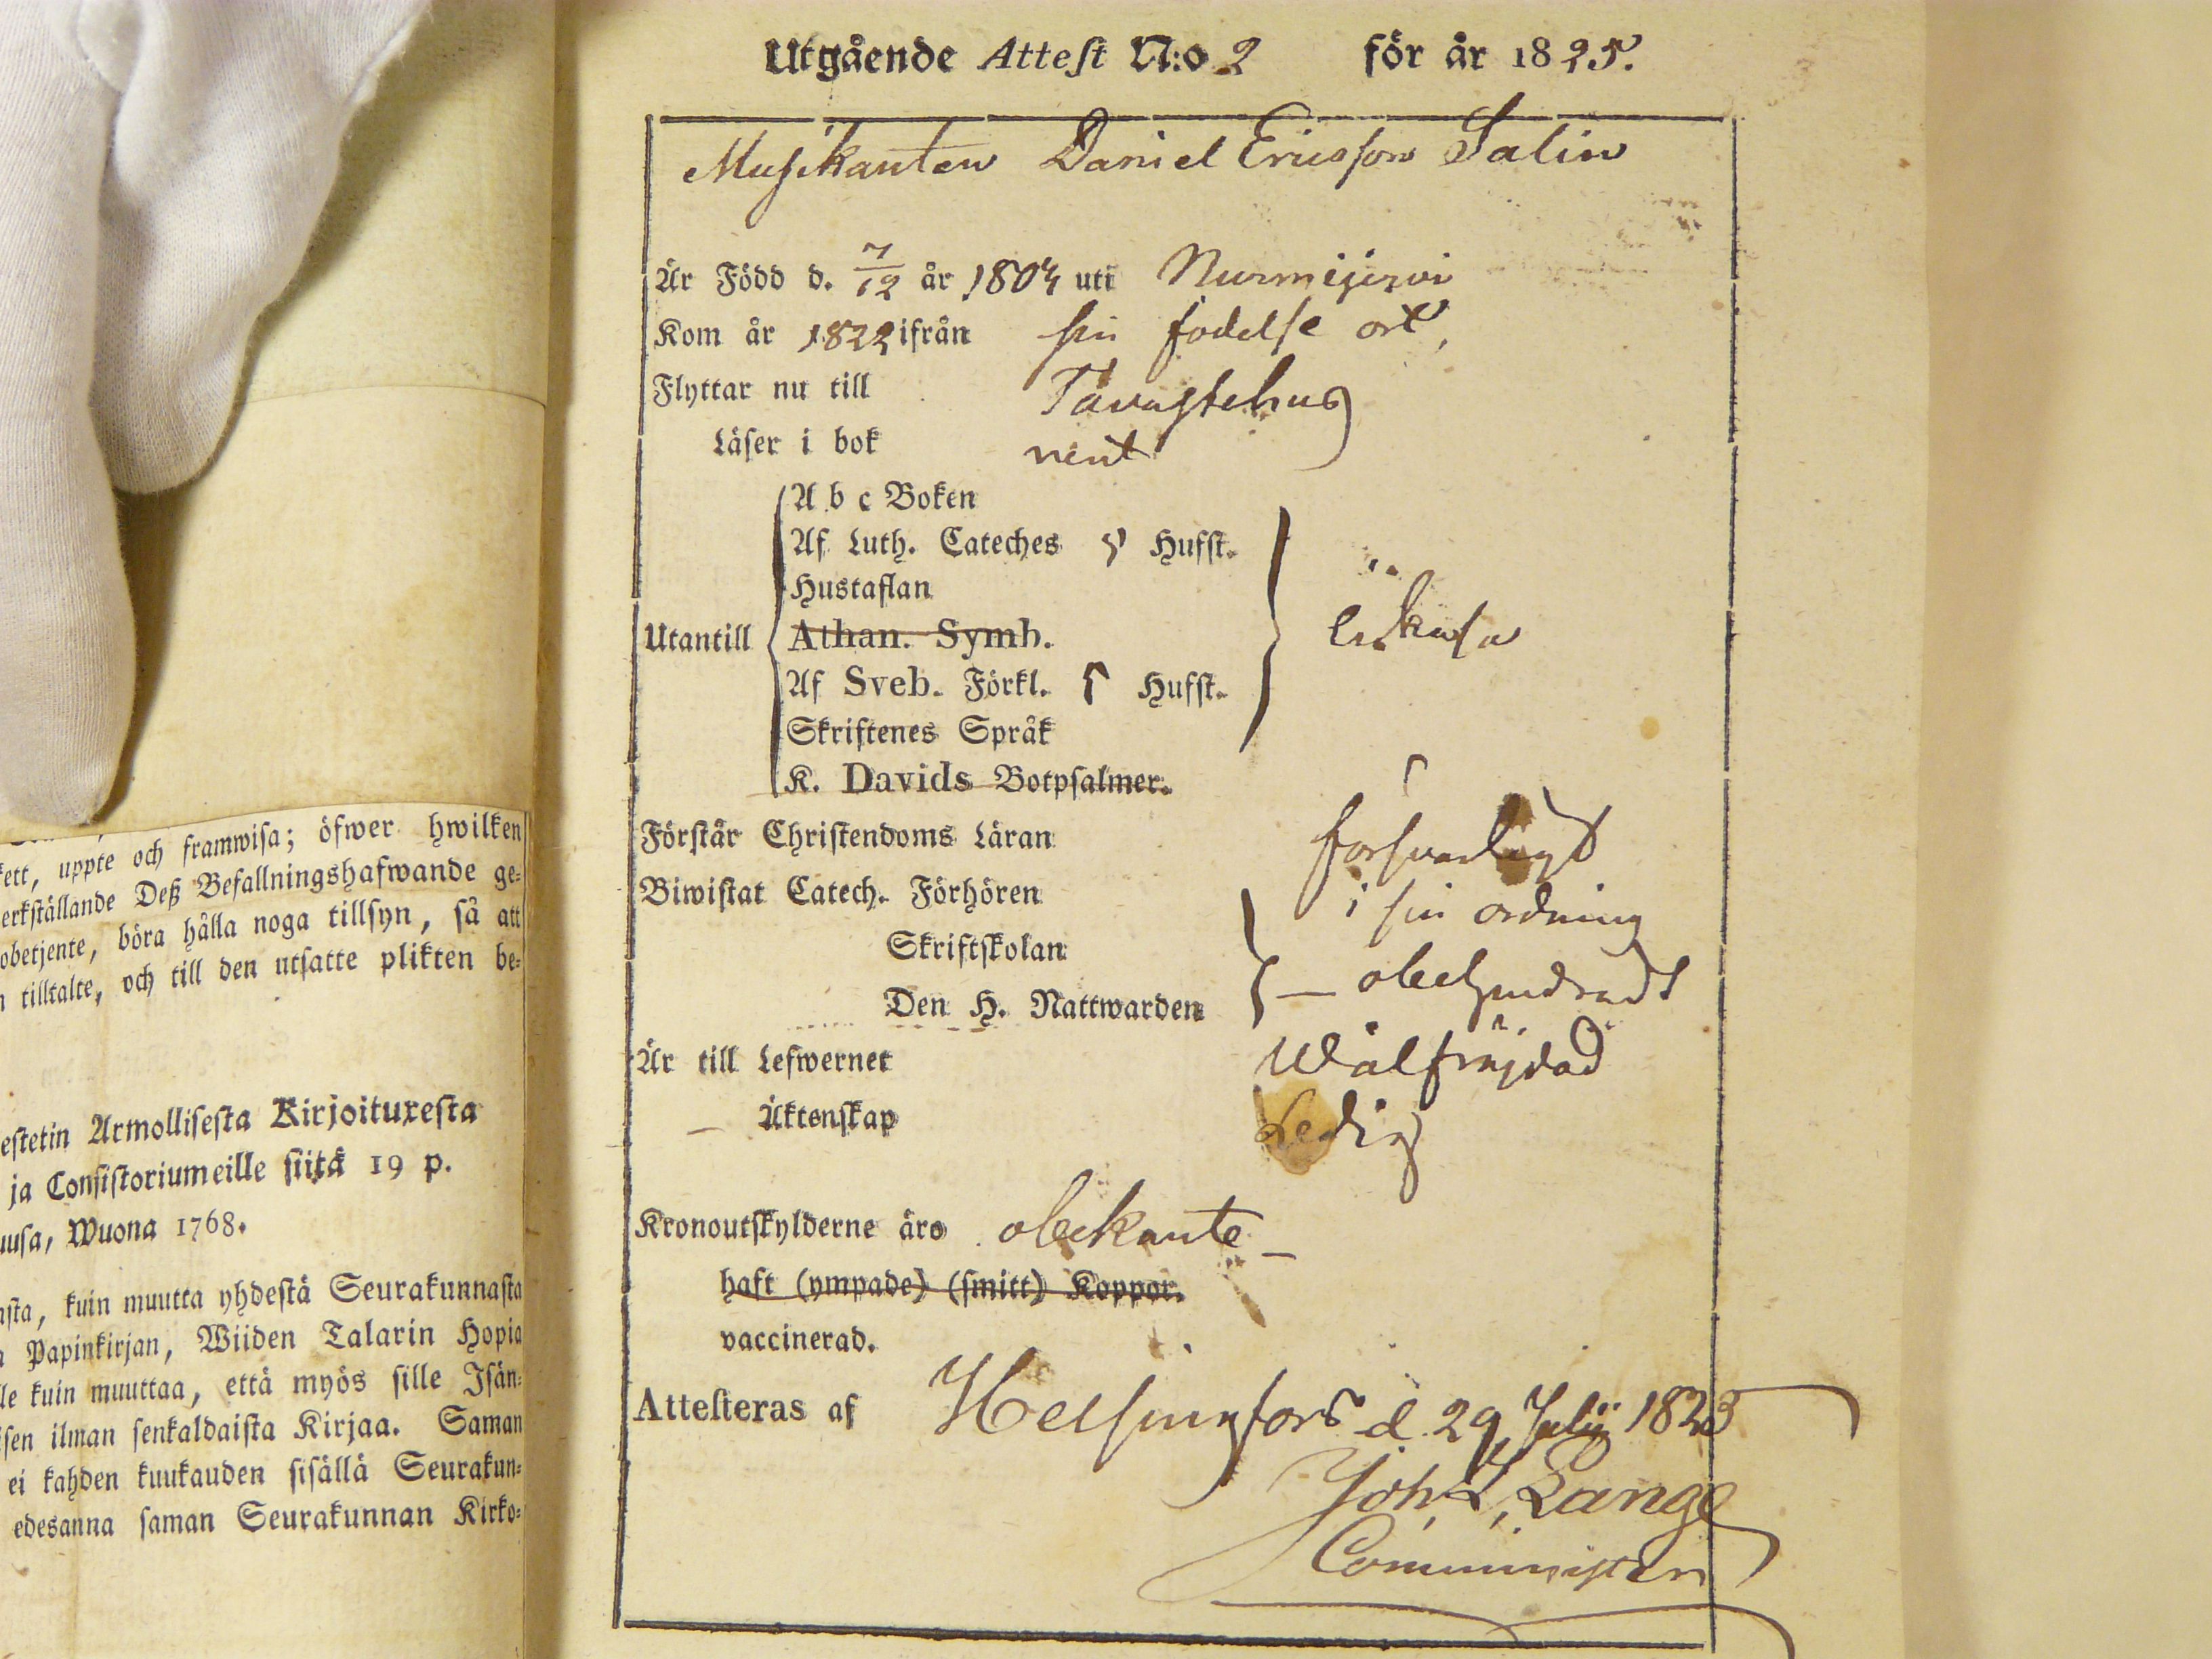 ett, uppte och framwisa; öfwer hwilken
erkställande Deß Befallningshafwande ge=
obetjente, böra hålla noga tillsyn, så att
tilltalte, och till den utsatte plikten be=
estetin Armollisesta Kirjoituxesta
ja Consistoriumeille siitä 19 p.
uusa, Wuona 1768.
asta, kuin muutta yhdestä Seurakunnasta
Papinkirjan, Wiiden Talarin Hopia
le kuin muuttaa, että myös sille Isän=
isen ilman senkaldaista Kirjaa. Saman
ei kahden kuukauden sisällä Seurakun=
edesanna saman Seurakunnan Kirko=
Utgående Attest N:o 2 för år 1825.
Musikanten Daniel Ericsson Salin
Är Född d. 7/12 år 1804 uti Nurmijerwi
Kom år 1822 ifrån sin födelse ort,
Flyttar nu till Tavastehus
Läser i bok rent
Utantill
A b c Boken
Af Luth. Cateches 5 Hufst.
Hustaflan
Athan. Symb.
Af Sveb. Förkl. Hufst.
Skriftenes Språk
K. Davids Botpsalmer.
likaså
Förstår Christendoms Läran försvarligt
Biwistat Catech. Förhören i sin ordning
Skriftskolan
Den H. Nattwarden — obehindradt
Är till Lefwernet Wälfräjdad
— Äktenskap Ledig
Kronoutskylderne äro obekante —
haft (ympade) (smitt) Koppor.
vaccinerad.
Attesteras af Helsingfors d. 29 Julii 1823
Joh. L. Lange
Comminister